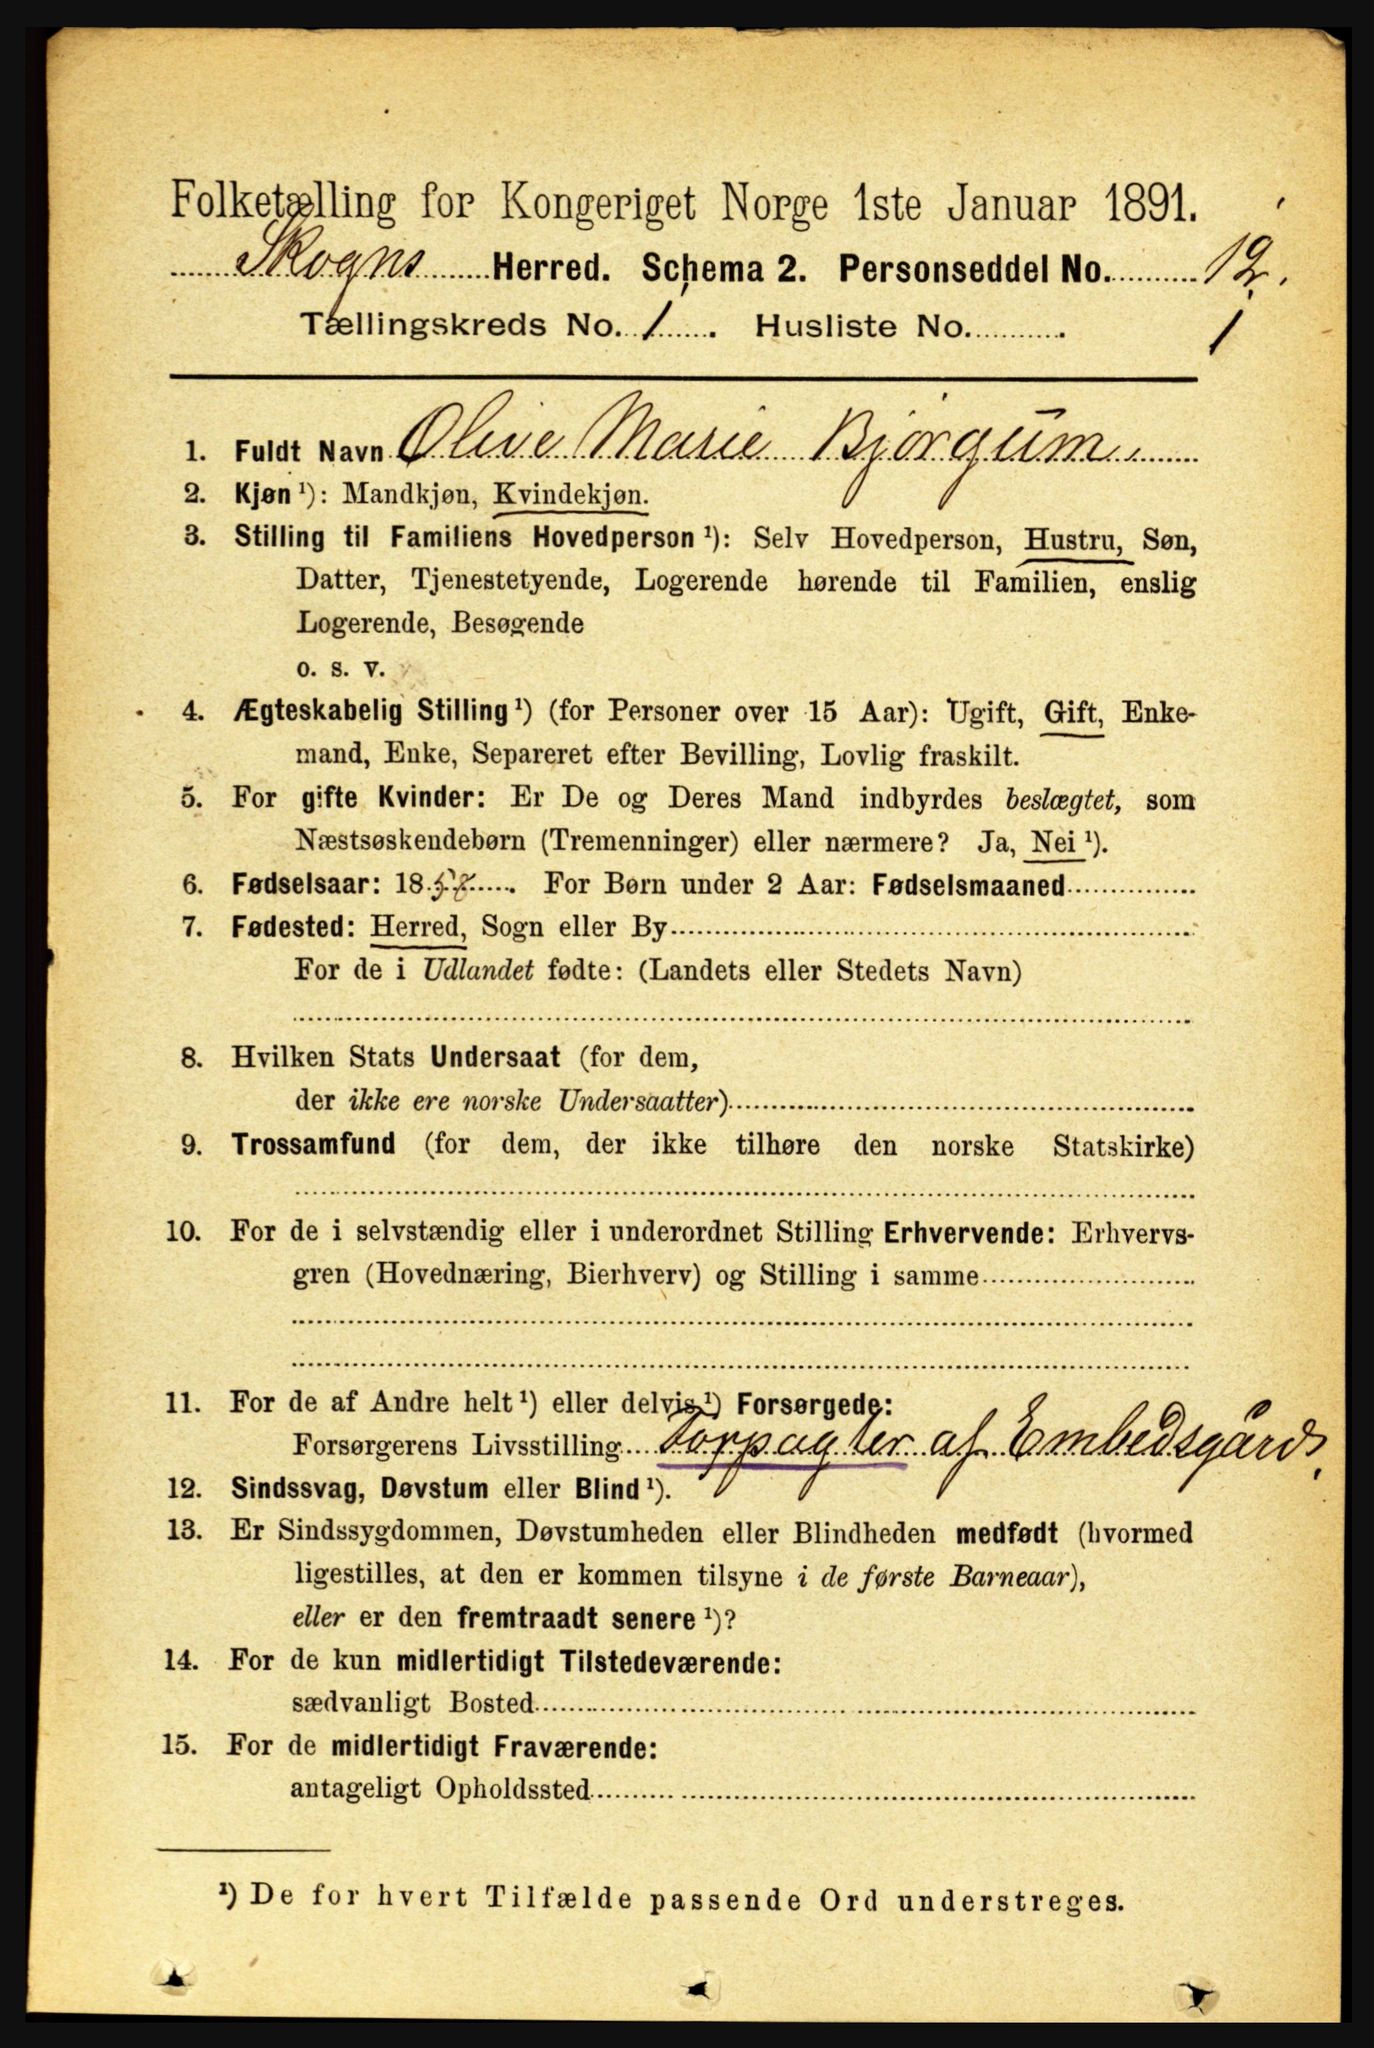 Folketælling for Kongeriget Norge 1ste Januar 1891.
Skogns Herred. Schema 2. Personseddel No. 12.
Tællingskreds No. 1. Husliste No. 1
1. Fuldt Navn Olive Marie Bjørgum
2. Kjøn ¹): Mandkjøn, Kvindekjøn.
3. Stilling til Familiens Hovedperson ¹): Selv Hovedperson, Hustru, Søn,
Datter, Tjenestetyende, Logerende hørende til Familien, enslig
Logerende, Besøgende
o. s. v.
4. Ægteskabelig Stilling ¹) (for Personer over 15 Aar): Ugift, Gift, Enke-
mand, Enke, Separeret efter Bevilling, Lovlig fraskilt.
5. For gifte Kvinder: Er De og Deres Mand indbyrdes beslægtet, som
Næstsøskendebørn (Tremenninger) eller nærmere? Ja, Nei ¹).
6. Fødselsaar: 1858. For Børn under 2 Aar: Fødselsmaaned
7. Fødested: Herred, Sogn eller By
For de i Udlandet fødte: (Landets eller Stedets Navn)
8. Hvilken Stats Undersaat (for dem,
der ikke ere norske Undersaatter)
9. Trossamfund (for dem, der ikke tilhøre den norske Statskirke)
10. For de i selvstændig eller i underordnet Stilling Erhvervende: Erhvervs-
gren (Hovednæring, Bierhverv) og Stilling i samme
11. For de af Andre helt ¹) eller delvis ¹) Forsørgede:
Forsørgerens Livsstilling Forpagter af Embedsgård
12. Sindssvag, Døvstum eller Blind ¹).
13. Er Sindssygdommen, Døvstumheden eller Blindheden medfødt (hvormed
ligestilles, at den er kommen tilsyne i de første Barneaar),
eller er den fremtraadt senere ¹)?
14. For de kun midlertidigt Tilstedeværende:
sædvanligt Bosted
15. For de midlertidigt Fraværende:
antageligt Opholdssted
¹) De for hvert Tilfælde passende Ord understreges.